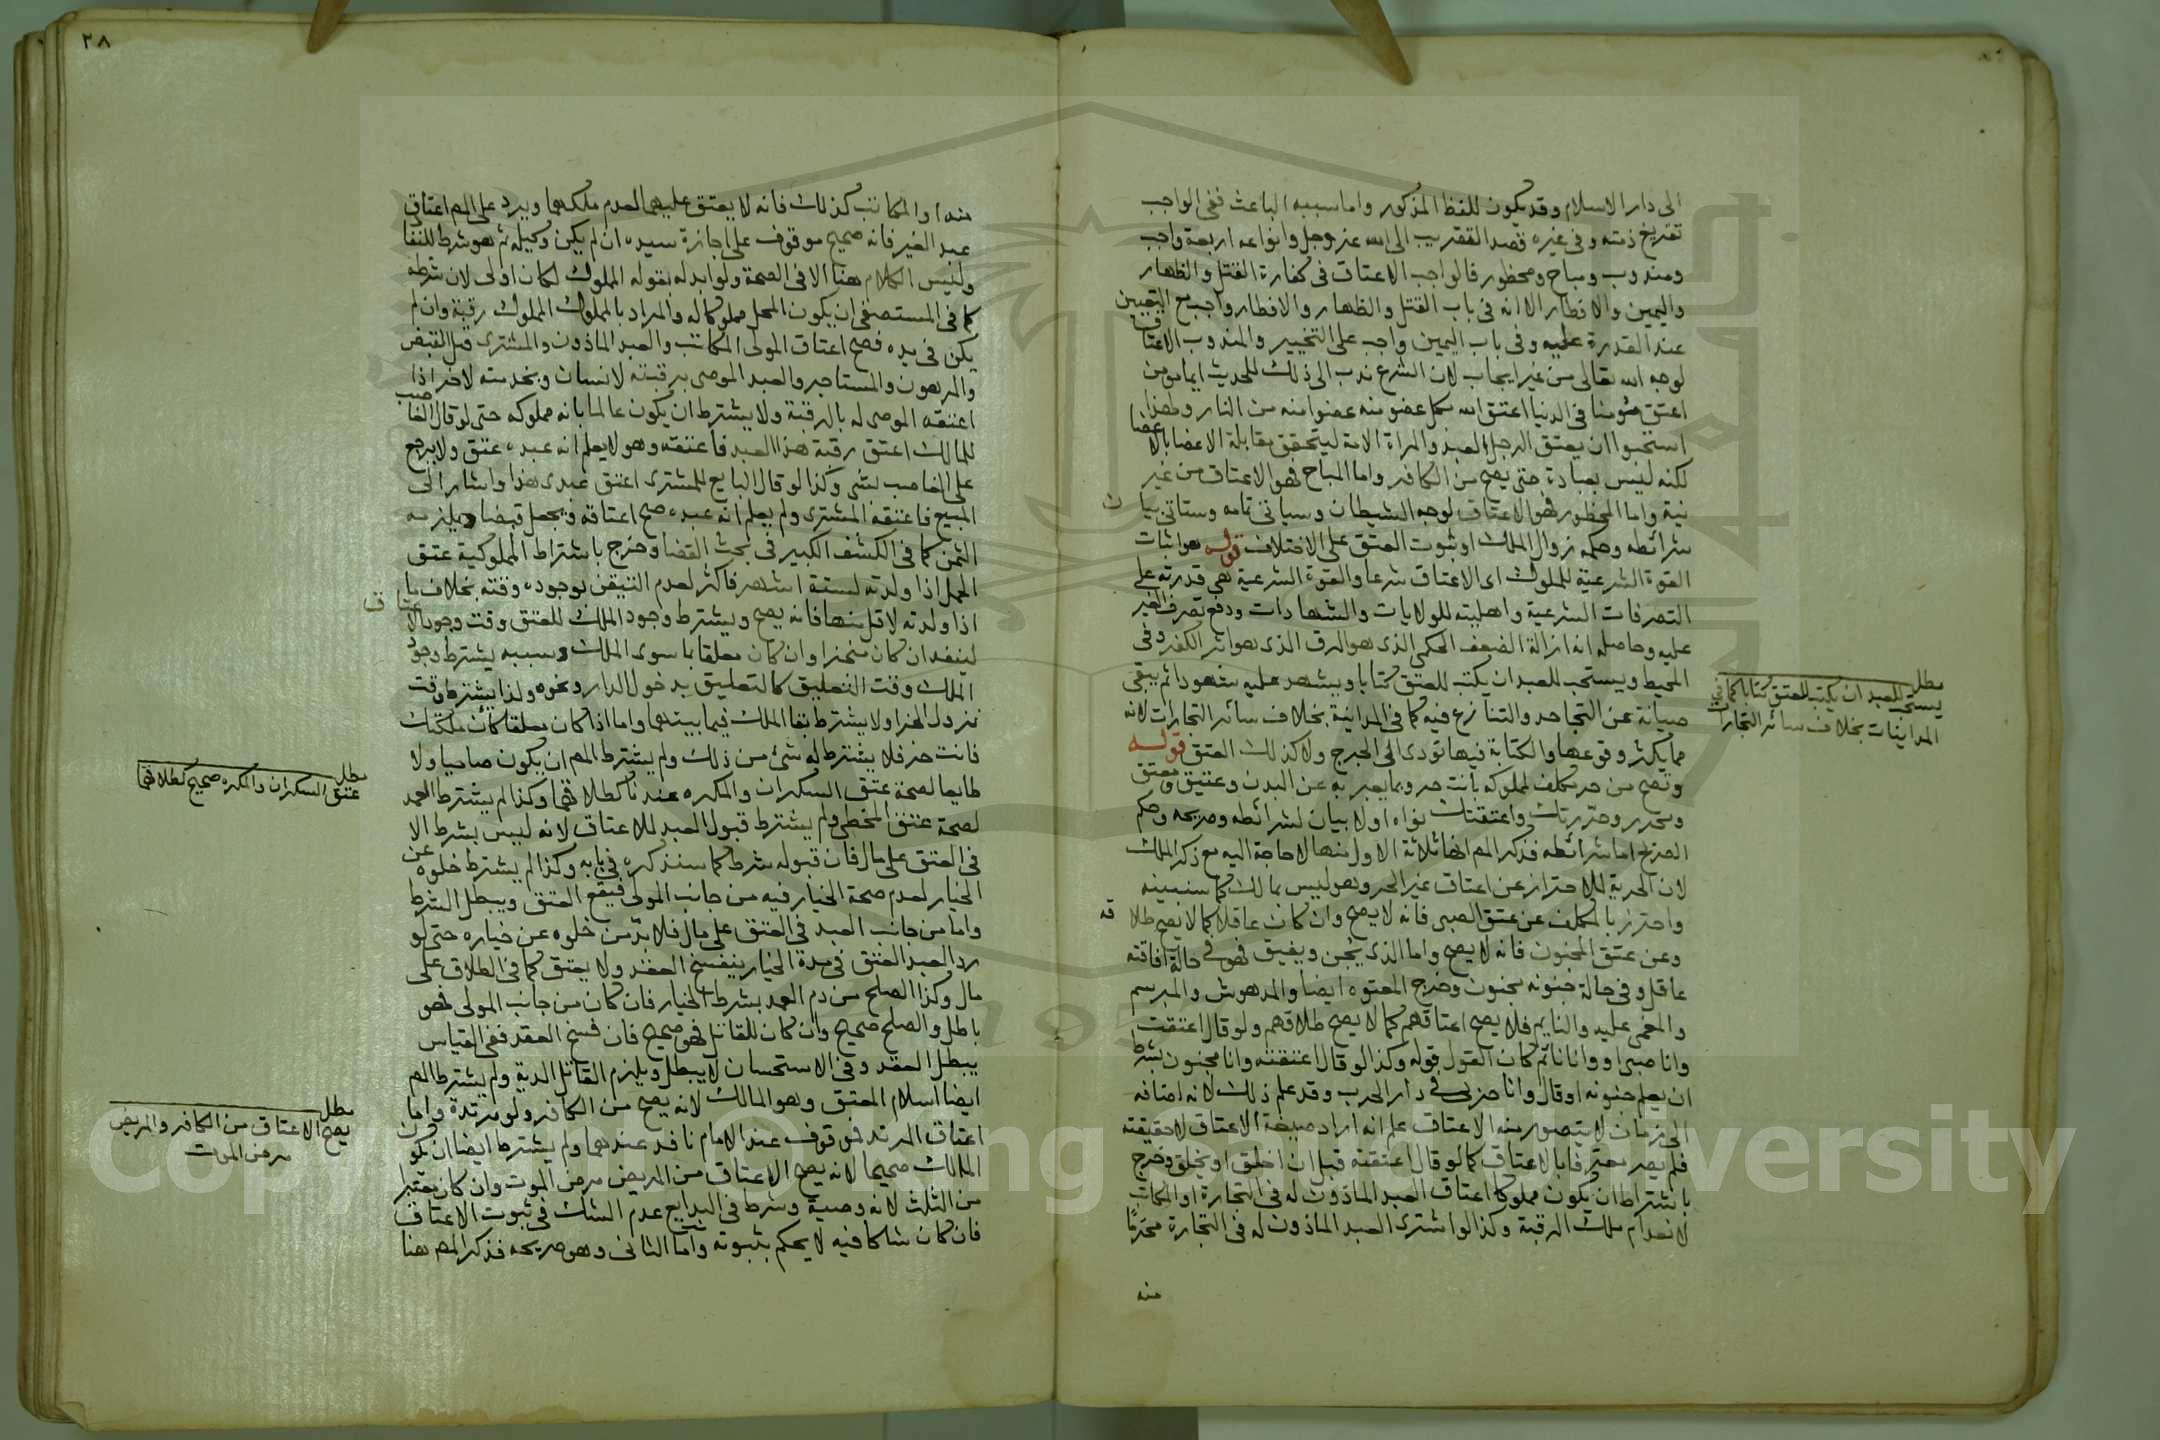 الى دار الاسلام وقد يكون للفظ المذكور واما سببه الباعث ففي الواجب
تفريغ ذمته وفي غيره قصد التقريب الى الله عز وجل وانواعه اربعة واجب
ومندوب ومباح ومحظور فالواجب الاعتاق في كفارة القتل والظهار
واليمين والافطار الا انه في باب القتل والظهار والافطار واجب مع التعيين
عند القدرة عليه وفي باب اليمين واجب على التخيير والمندوب الاعتاق
لوجه الله تعالى من غير ايجاب لان الشرع ندب الى ذلك للحديث ايما مؤمن
اعتق مؤمنا في الدنيا اعتق الله بكل عضو منه عضوا منه من النار ولهذا
استحبوا ان يعتق الرجل العبد والمراة الامة ليتحقق مقابلة الاعضا بالاعضا
لكنه ليس بعبادة حتى يصح من الكافر واما المباح فهو الاعتاق من غير
نية واما المحظور فهو الاعتاق لوجه الشيطان وسياتي تمامه وستاتي بيان
شرائطه وحكمه زوال الملك او ثبوت العتق على الاختلاف قوله هو اثبات
القوة الشرعية للمملوك اى الاعتاق شرعا والقوة الشرعية هي قدرته على
التصرفات الشرعية واهليته للولايات والشهادات ودفع تصرف الغير
عليه وحاصله انه ازالة الضعف الحكمي الذى هو الرق الذى هو اثر الكفر وفي
المحيط ويستحب للعبد ان يكتب للعتق كتابا ويشهد عليه شهودا ثم يبقى
صيانة عن التجاحد والتنازع فيه كما في المداينة بخلاف سائر التجارات لانه
مما يكثر وقوعها والكتابة فيها تودى الى الحرج ولا كذلك العتق قوله
وتصح من حر مكلف لمملوكه بانت حر وبما يعبر به عن البدن وعتيق ومعتق
ومحرر وحررتك واعتقتك نواه اولا بيان لشرائطه وصريحه وحكم
الصريح اما شرائطه فذكر المص انها ثلاثة الاول منها لا حاجة اليه مع ذكر الملك
لان الحرية للاحتراز عن اعتاق غير الحر وهو ليس بمالك كما سنبينه
واحترز بالمكلف عن عتق الصبى فانه لا يصح وان كان عاقلا كما لا يصح طلاقه
وعن عتق المجنون فانه لا يصح واما الذى يجن ويفيق فهو في حالة افاقته
عاقل وفي حالة جنونه مجنون وخرج المعتوه ايضا والمدهوش والمبرسم
والمغمى عليه والنايم فلا يصح اعتاقهم كما لا يصح طلاقهم ولو قال اعتقت
وانا صبى او وانا نائم كان القول قوله وكذا لو قال اعتقته وانا مجنون بشرط
ان يعلم جنونه او قال وانا حربى في دار الحرب وقد علم ذلك لانه اضافه
الى زمان لا يتصور منه الاعتاق علم انه اراد صيغة الاعتاق لا حقيقته
فلم يصر معترفا بالاعتاق كما لو قال اعتقته قبل ان اخلق او يخلق وخرج
باشتراط ان يكون مملوكا اعتاق العبد الماذون له في التجارة او المكاتب
لانعدام ملك الرقبة وكذا لو اشترى العبد الماذون له في التجارة محرما
منه
مطلب
يستحب للعبد ان يكتب للعتق كتابا كما في
المداينات بخلاف سائر التجارات
٢٨
منه او المكاتب كذلك فانه لا يعتق عليهما لعدم ملكهما ويرد على المص اعتاق
عبد الغير فانه صحيح موقوف على اجازة سيده ان لم يكن وكيله ثم هو شرط للنفاذ
وليس الكلام هنا الا في الصحة ولو ابدله بقوله المملوك لكان اولى لان شرطه
كما في المستصفى ان يكون المحل مملوكا له والمراد بالمملوك المملوك رقبة وان لم
يكن في يده فصح اعتاق المولى المكاتب والعبد الماذون والمشترى قبل القبض
والمرهون والمستاجر والعبد الموصى برقبته لانسان وبخدمته لاخر اذا
اعتقه الموصى له بالرقبة ولا يشترط ان يكون عالما بانه مملوكه حتى لو قال الغاصب
للمالك اعتق رقبة هذا العبد فاعتقه وهو لا يعلم انه عبده عتق ولا يرجع
على الغاصب بشى وكذا لو قال البايع للمشترى اعتق عبدى هذا واشار الى
المبيع فاعتقه المشترى ولم يعلم انه عبده صح اعتاقه ويجعل قبضا ويلزمه
الثمن كما في الكشف الكبير في بحث القضا وخرج باشتراط المملوكية عتق
الحمل اذا ولدته لستة اشهر فاكثر لعدم التيقن بوجوده وقته بخلاف ما
اذا ولدته لاقل منها فانه يصح ويشترط وجود الملك للمعتق وقت وجود الاعتاق
لينفد ان كان منجزا وان كان معلقا بما سوى الملك وسببه يشترط وجود
الملك وقت التعليق كالتعليق بدخول الدار ونحوه ولذا يشترط وقت
نزول الجزا ولا يشترط بقا الملك فيما بينهما واما اذا كان معلقا كان ملكتك
فانت حر فلا يشترط له شئ من ذلك ولم يشترط المص ان يكون صاحيا ولا
طايعا لصحة عتق السكران والمكره عندنا كطلاقهما وكذا لم يشترط العمد
لصحة عتق المخطى ولم يشترط قبول العبد للاعتاق لانه ليس بشرط الا
في العتق على مال فان قبوله شرط كما سنذكره في بابه وكذا لم يشترط خلوه عن
الخيار لعدم صحة الخيار فيه من جانب المولى فيقع العتق ويبطل الشرط
واما من جانب العبد في العتق على مال فلابد من خلوه عن خياره حتى لو
رد العبد العتق في مدة الخيار ينفسخ العقد ولا يعتق كما في الطلاق على
مال وكذا الصلح من دم العمد بشرط الخيار فان كان من جانب المولى فهو
باطل والصلح صحيح وان كان للقاتل فهو صحيح فان فسخ العقد ففي القياس
يبطل العقد وفي الاستحسان لا يبطل ويلزم القاتل الدية ولم يشترط المص
ايضا اسلام المعتق وهو المالك لانه يصح من الكافر ولو مرتدة واما
اعتاق المرتد فموقوف عند الامام نافد عندهما ولم يشترط ايضا ان يكون
المالك صحيحا لانه يصح الاعتاق من المريض مرض الموت وان كان يعتبر
من الثلث لانه وصية وشرط في البدايع عدم الشك في ثبوت الاعتاق
فان كان شاكا فيه لا يحكم بثبوته واما الثانى وهو صريحه فذكر المص هنا
مطلب
عتق السكران والمكره صحيح كطلاقهما
مطلب
يصح الاعتاق من الكافر والمريض
مرض الموت
Copyright © King Saud University